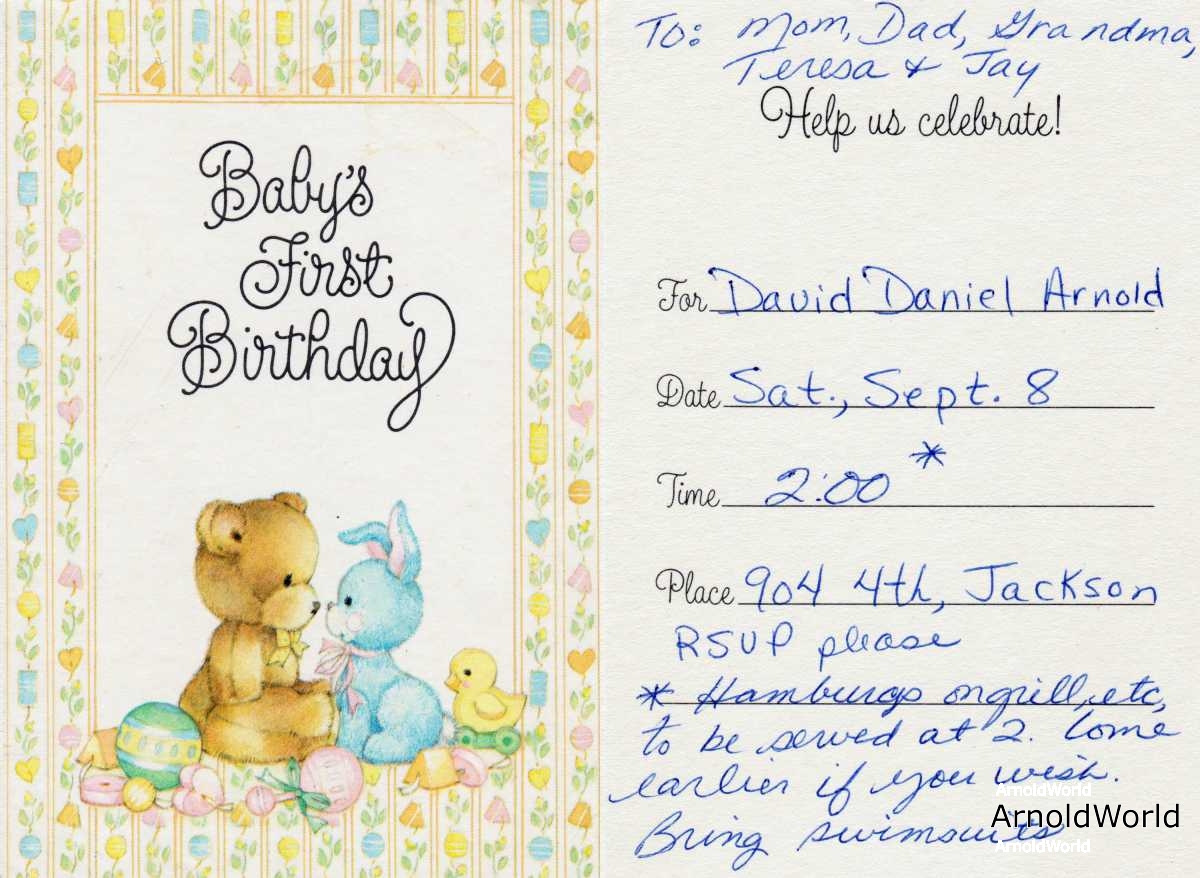 Baby's
First
Birthday
To: Mom, Dad, Grandma,
Teresa & Jay
Help us celebrate!
For David Daniel Arnold
Date Sat., Sept. 8
Time 2:00 *
Place 904 4th, Jackson
RSVP please
* Hamburgs on grill, etc,
to be served at 2. Come
earlier if you wish.
ArnoldWorld
ArnoldWorld
Bring swimsuits
ArnoldWorld